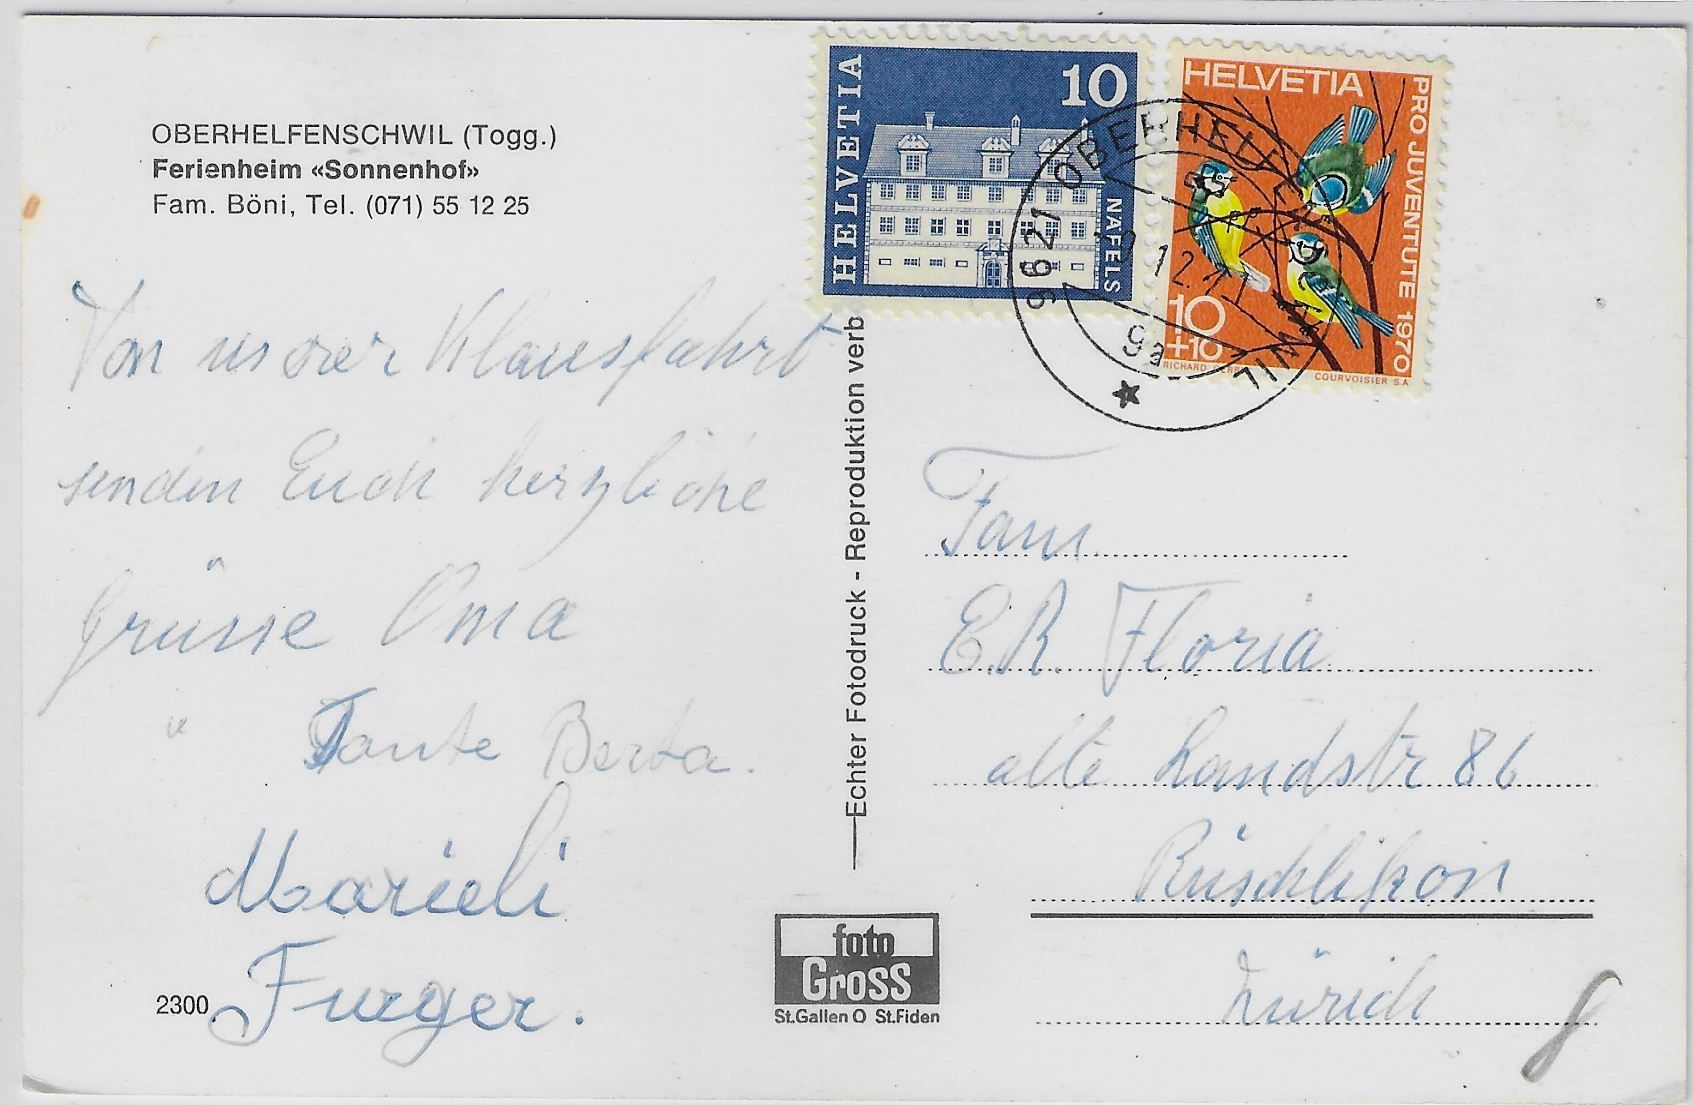 OBERHELFENSCHWIL (Togg.)
Ferienheim «Sonnenhof»
Fam. Böni, Tel. (071) 55 12 25
Von unsrer Klausfahrt
senden Euch herzliche
Grüsse Oma
" Tante Berta.
Marieli
Furger.
2300
Echter Fotodruck - Reproduktion verb
foto
Gross
St.Gallen O St.Fiden
HELVETIA
10
NÄFELS
HELVETIA
PRO JUVENTUTE 1970
10
+10
COURVOISIER S.A.
9621 OBERHELFENSCHWIL
9a
Fam.
E.R. Floria
alte Landstr 86
Rüschlikon
Zürich